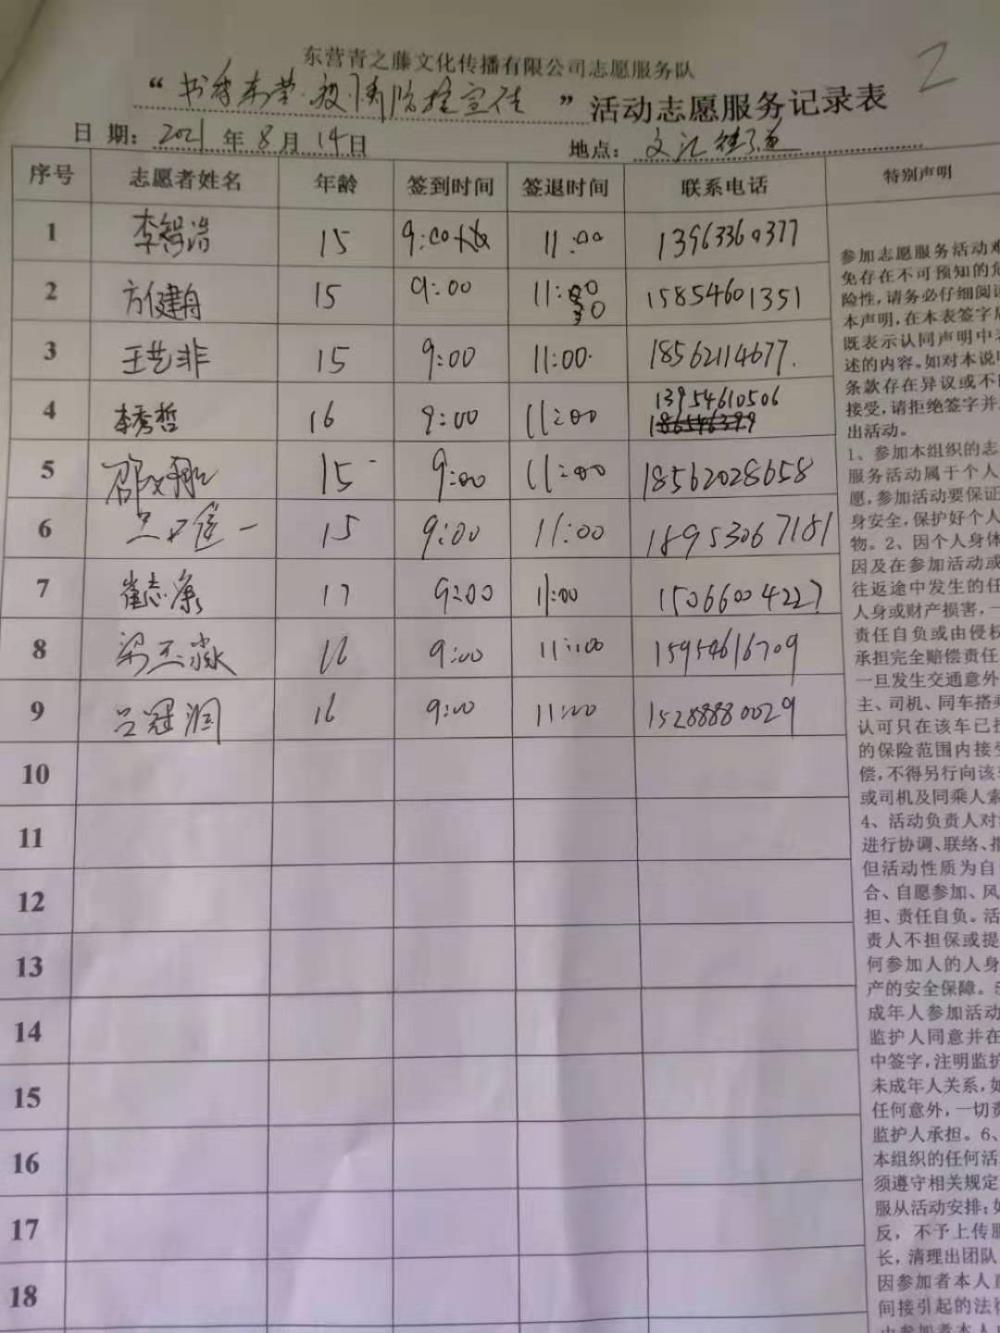 2
东营青之藤文化传播有限公司志愿服务队
“书香东营·疫情防控宣传”活动志愿服务记录表
日 期: 2021 年 8 月 14 日 地点: 文汇街道
序号 志愿者姓名 年龄 签到时间 签退时间 联系电话 特别声明
1 李智浩 15 9:00 11:00 13963360377
2 方健舟 15 9:00 11:30 15854601351
3 王艺非 15 9:00 11:00 18562114677
4 李秀哲 16 9:00 11:00 13954610506
5 邵 15 9:00 11:00 18562028658
6 一 15 9:00 11:00 18953067181
7 崔志康 17 9:00 11:00 15066004227
8 梁玉淼 16 9:00 11:00 15954616709
9 吕冠润 16 9:00 11:00 15288880029
10
11
12
13
14
15
16
17
18
参加志愿服务活动难
免存在不可预知的危
险性,请务必仔细阅读
本声明,在本表签字后
既表示认同声明中表
述的内容。如对本说明
条款存在异议或不同
接受,请拒绝签字并
出活动。
1、参加本组织的志
服务活动属于个人
愿,参加活动要保证
身安全,保护好个人
物。2、因个人身体
因及在参加活动或
往返途中发生的任
人身或财产损害,一
责任自负或由侵权
承担完全赔偿责任
一旦发生交通意外
主、司机、同车搭乘
认可只在该车已投
的保险范围内接受
偿,不得另行向该
或司机及同乘人索
4、活动负责人对
进行协调、联络、指
但活动性质为自
合、自愿参加、风
担、责任自负。活
责人不担保或提
何参加人的人身
产的安全保障。5
成年人参加活动
监护人同意并在
中签字,注明监护
未成年人关系,如
任何意外,一切责
监护人承担。6、
本组织的任何活
须遵守相关规定
服从活动安排;如
反，不予上传服
长，清理出团队
因参加者本人直
间接引起的法律
由参加者本人